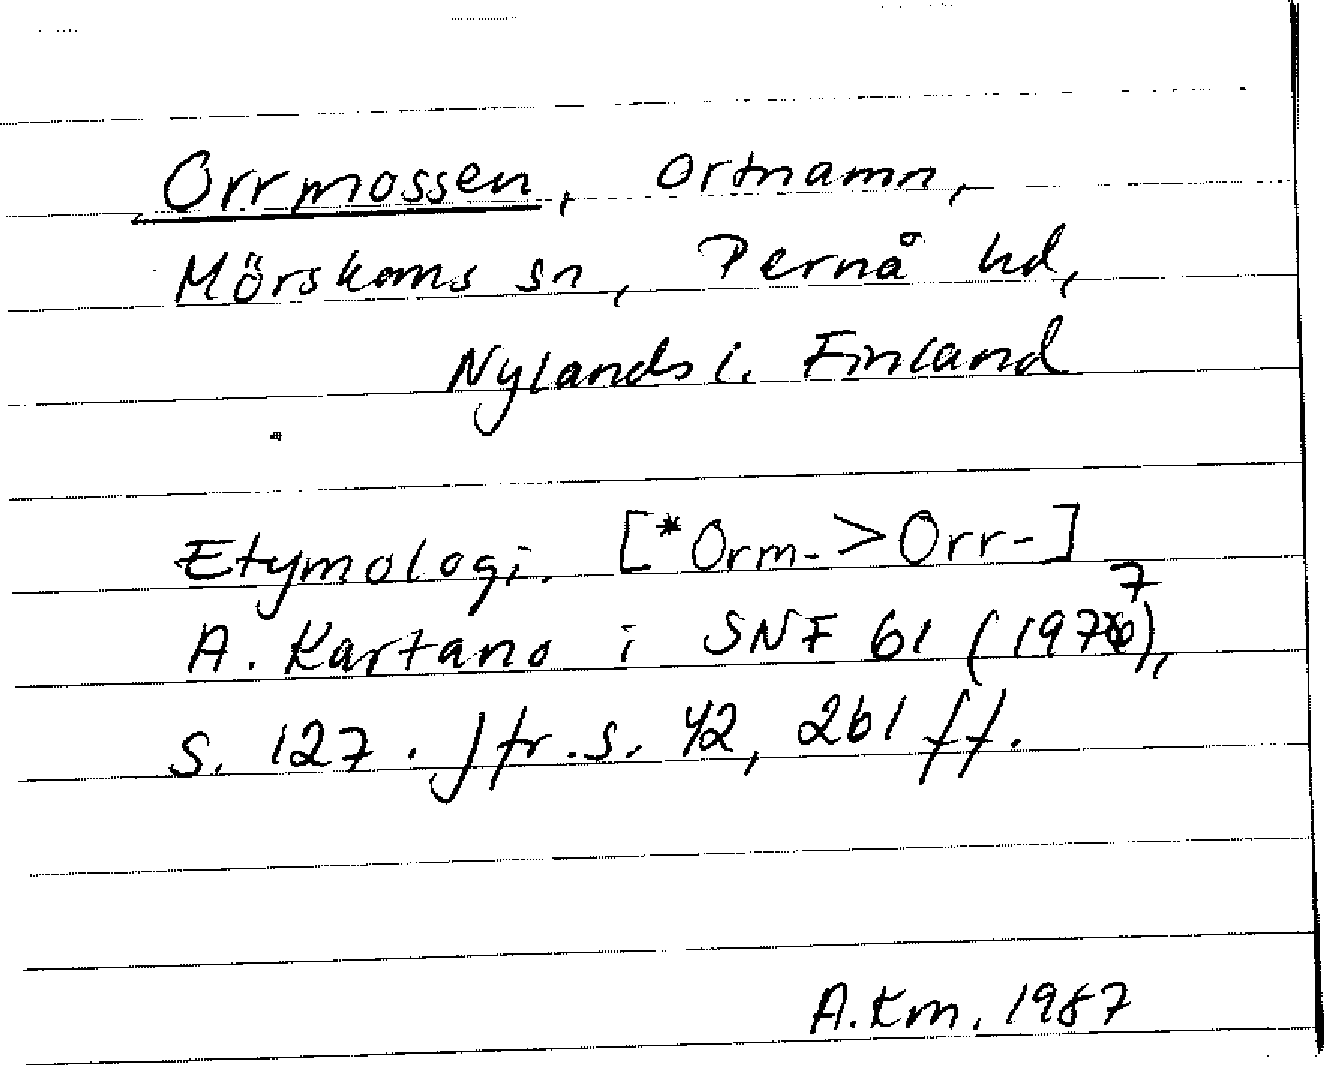 Orrmossen, ortnamn,
Mörskoms sn, Pernå hd,
Nylands l. Finland
Etymologi. [*Orm- > Orr-]
A. Kartano i SNF 61 (1977),
s. 127. Jfr. s. 42, 261 ff.
A. Km. 1987